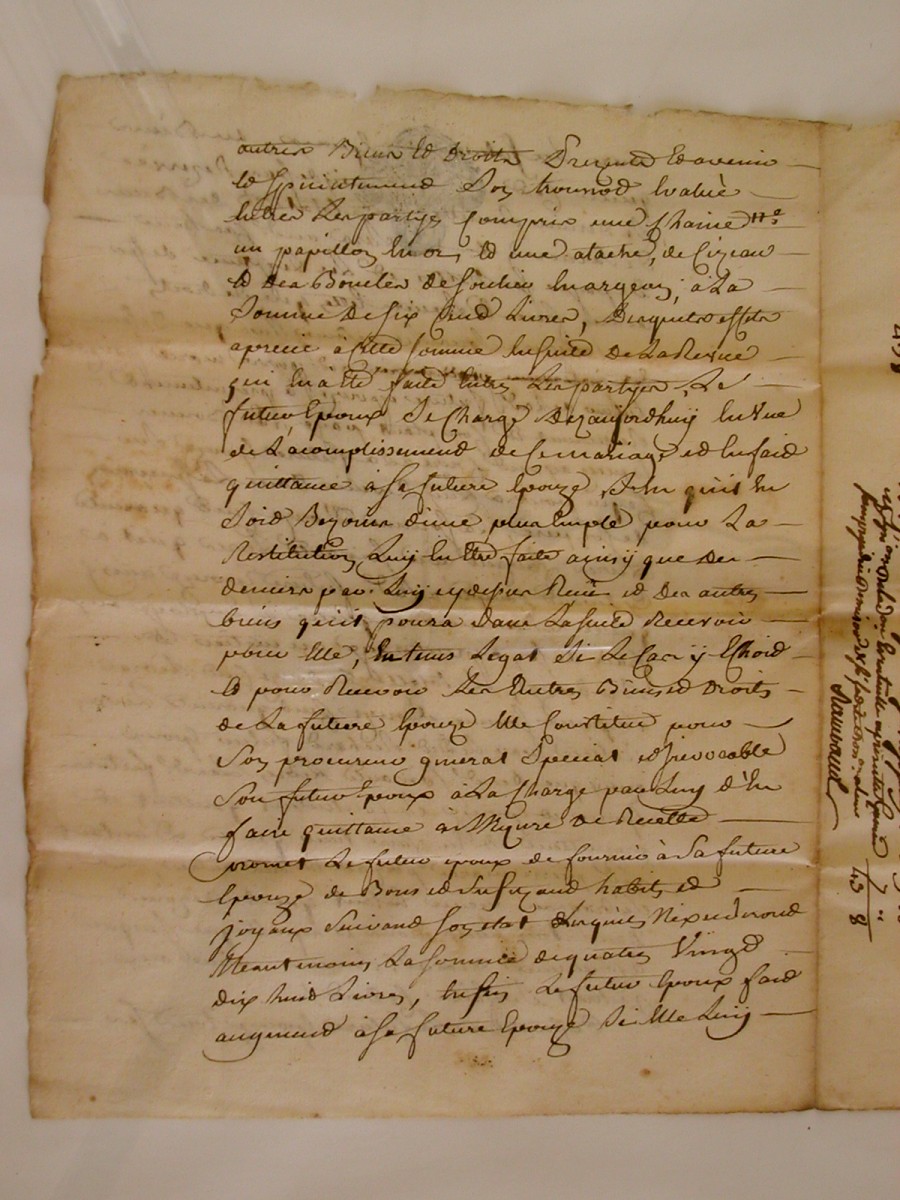 autres Biens Et Droits Presents Et avenir
Et Specialement Son trousseau Evalué
Entre Les partyes Compris une Chaine
un papillon En or, Et une atache, de Cizeau
Et des Boucles de Soulier En argent, à La
Somme De Six Cend Livres, Desquels effets
aprecié à Cette Somme Ensuite De La Revue
qui En à Eté faite Entre Les partyes, Le
futur Epoux Se Charge Dezaujordhuy En Vue
de L'acomplissement de Ce mariage et En faid
quittance à Sa future Epouze, San quil En
Soid Bezoins d'une plus Emple pour La
Restitution Luy En Etre faite ainsy que Des
deniers par Luy cydessus Receu et Des autres
biens quil poura dans La Suite Recevoir
pour Elle, En tems Legat Si Le Cas y Echoid
Et pour Recevoir Les Autres Biens et Droits
de La future Epouze Elle Constitue pour
Son procureur general Special et Irevocable
Son futur Epoux à La Charge par Luy d'En
faire quittance à Mezure De Recette
promet Le futur epoux de fournir à Sa future
Epouze de Bons et Sufizand habits et
joyaux Suivand Son etat desquels N'exederond
Neantmoins La Somme de quatre Vingd
dix huid Livres, Enfin Le futur Epoux faid
augmend à Sa future Epouze Si Elle Luy
43
8